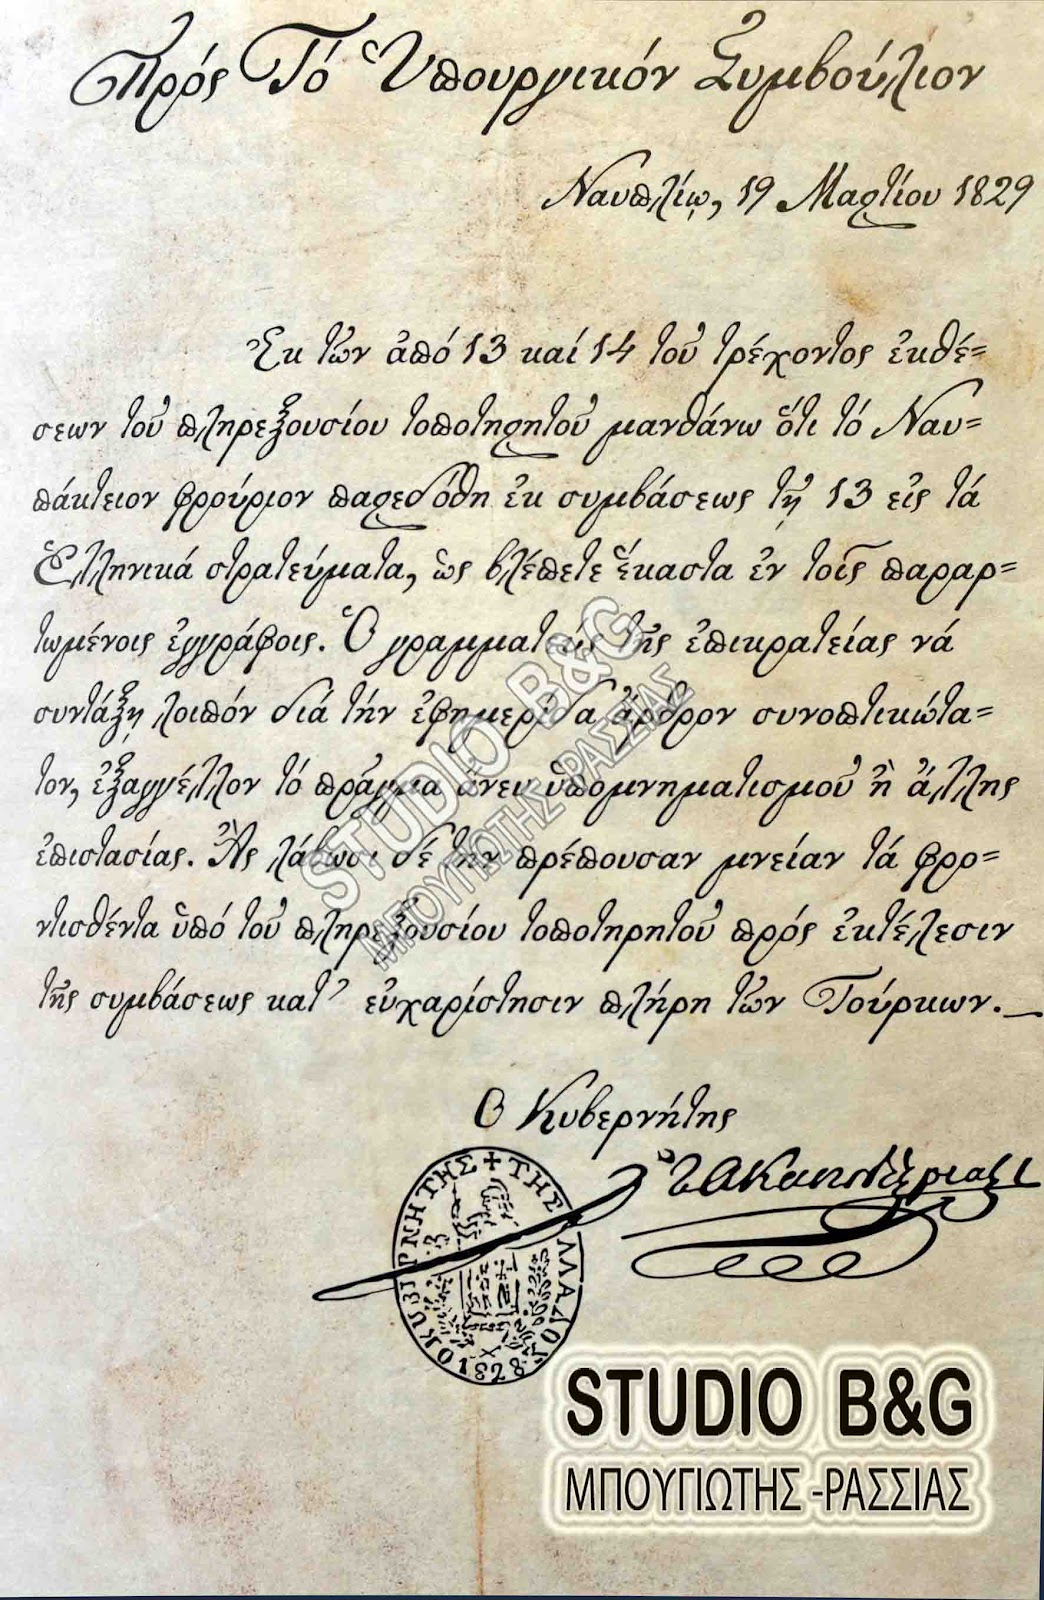 Πρός Τό Ὑπουργικόν Συμβούλιον
Ναυπλίῳ, 19 Μαρτίου 1829
Ἐκ τῶν ἀπό 13 καί 14 τοῦ τρέχοντος ἐκθέ=
σεων τοῦ πληρεξουσίου τοποτηρητοῦ μανθάνω ὅτι τό Ναυ=
πάκτειον φρούριον παρεδόθη ἐκ συμβάσεως τῇ 13 εἰς τά
Ἑλληνικά στρατεύματα, ὡς βλέπετε ἕκαστα ἐν τοῖς παραρ=
τωμένοις ἐγγράφοις. Ὁ γραμματεύς τῆς ἐπικρατείας νά
συντάξῃ λοιπόν διά τήν ἐφημερίδα ἄρθρον συνοπτικώτα=
τον, ἐξαγγέλλον τό πρᾶγμα ἄνευ ὑπομνηματισμοῦ ἢ ἄλλης
ἐπιστασίας. Ἂς λάβωσι δέ τήν πρέπουσαν μνείαν τά φρο=
ντισθέντα ὑπό τοῦ πληρεξουσίου τοποτηρητοῦ πρός ἐκτέλεσιν
τῆς συμβάσεως κατ' εὐχαρίστησιν πλήρη τῶν Τούρκων.
Ο Κυβερνήτης
Ἰ Α Καποδίστριας
Ο ΚΥΒΕΡΝΗΤΗΣ + ΤΗΣ ΕΛΛΑΔΟΣ 1828
STUDIO B&G
ΜΠΟΥΓΙΩΤΗΣ -ΡΑΣΣΙΑΣ
STUDIO B&G
ΜΠΟΥΓΙΩΤΗΣ -ΡΑΣΣΙΑΣ